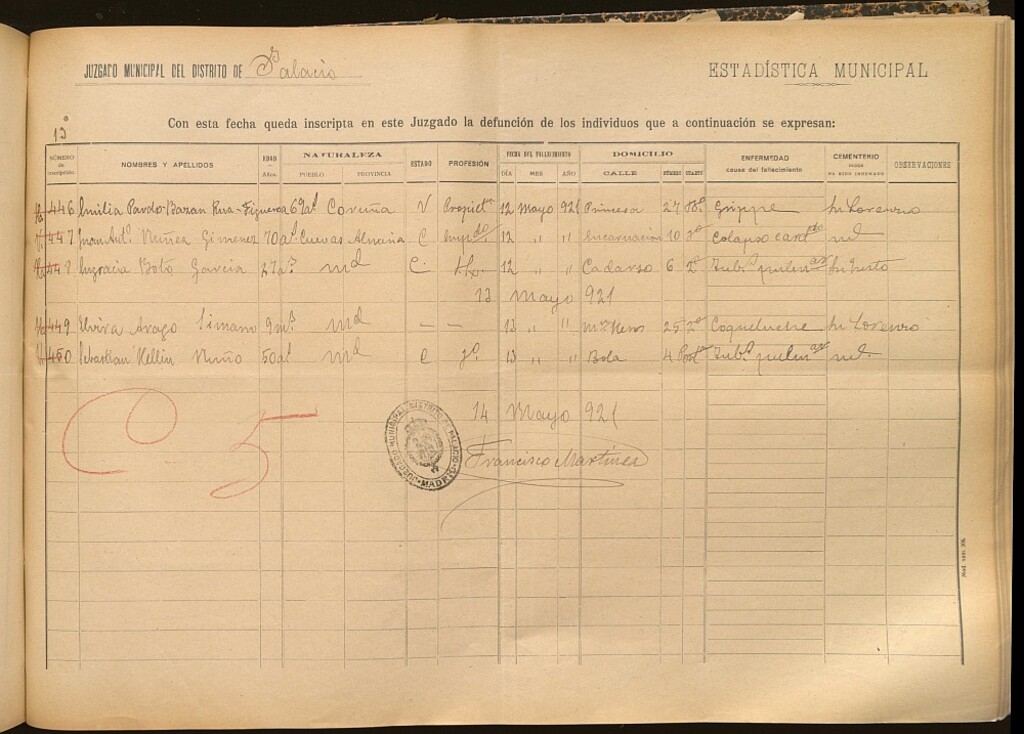 JUZGADO MUNICIPAL DEL DISTRITO DE Palacio
ESTADÍSTICA MUNICIPAL
13
Con esta fecha queda inscripta en este Juzgado la defunción de los individuos que a continuación se expresan:
NÚMERO de inscripción NOMBRES Y APELLIDOS EDAD Años. NATURALEZA PUEBLO PROVINCIA ESTADO PROFESIÓN FECHA DEL FALLECIMIENTO DÍA MES AÑO DOMICILIO CALLE NÚMERO CUARTO ENFERMEDAD causa del fallecimiento CEMENTERIO DONDE HA SIDO INHUMADO OBSERVACIONES
446 Emilia Pardo-Bazan Rua-Figueroa 69 aˢ Coruña V Propictª 12 Mayo 921 Princesa 27 Grippe Sn Lorenzo
447 Juan Antº Nuñez Gimenez 70 aˢ Cuevas Almeria C Empdo 12 " " Encarnacion 10 3º Colapso cardco id
448 Engracia Boto Garcia 27 aˢ Md C. 12 " " Cadarso 6 2º Tubˢ pulmar
13 Mayo 921
449 Elvira Arago Simano 9 mˢ Md — — 13 " " 25 2º Coqueluche Sn Lorenzo
450 Sebastian Hellin Muño 50 aˢ Md C jº 13 " " Bola 4 Tubˢ pulmar id
14 Mayo 921
C 5
JUZGADO MUNICIPAL DISTRITO DE PALACIO MADRID
Francisco Martinez